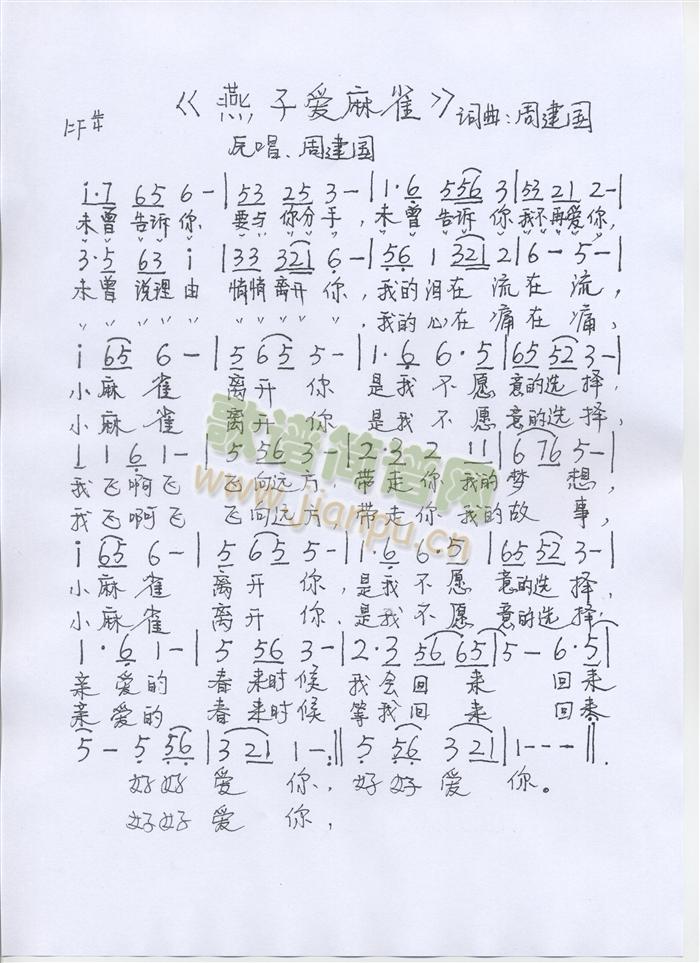 《燕子爱麻雀》
词曲:周建国
1=F 4/4
原唱、周建国
i·7 65 6- | 53 25 3- | 1·6 556 3 | 53 21 2- |
未曾 告诉 你 要与 你分 手, 未曾 告诉 你 我不 再爱 你,
〃 〃 〃 〃 〃 〃 〃 〃 〃 〃 〃 〃 〃 〃 〃 〃 〃 〃
3·5 63 i | 33 321 6- | 56 1 321 2 | 6- 5- |
未曾 说理 由 悄悄 离开 你, 我的 泪在 流在 流,
〃 〃 〃 〃 〃 〃 〃 〃 〃 〃 我的 心在 痛在 痛,
i 65 6- | 5 65 5- | 1·6 6·5 | 65 52 3- |
小麻雀 离开你 是我不愿 意的选择,
小麻雀 离开你 是我不愿 意的选择,
1 1 6 1- | 5 56 3- | 2·3 2 11 | 6 76 5- |
我飞啊飞 飞向远方, 带走你 我的梦 想,
我飞啊飞 飞向远方, 带走你 我的故 事,
i 65 6- | 5 65 5- | 1·6 6·5 | 65 52 3- |
小麻雀 离开你, 是我不愿 意的选择,
小麻雀 离开你, 是我不愿 意的选择,
1·6 1- | 5 56 3- | 2·3 56 65 | 5- 6·5 |
亲爱的 春来时候 我会回来 回来
亲爱的 春来时候 等我回来 回来
5- 5 56 | 3 21 1- :|| 5 56 3 21 | 1--- ||.
好好爱 你, 好好爱 你。
好好爱 你,
歌谱简谱网
www.jianpu.cn